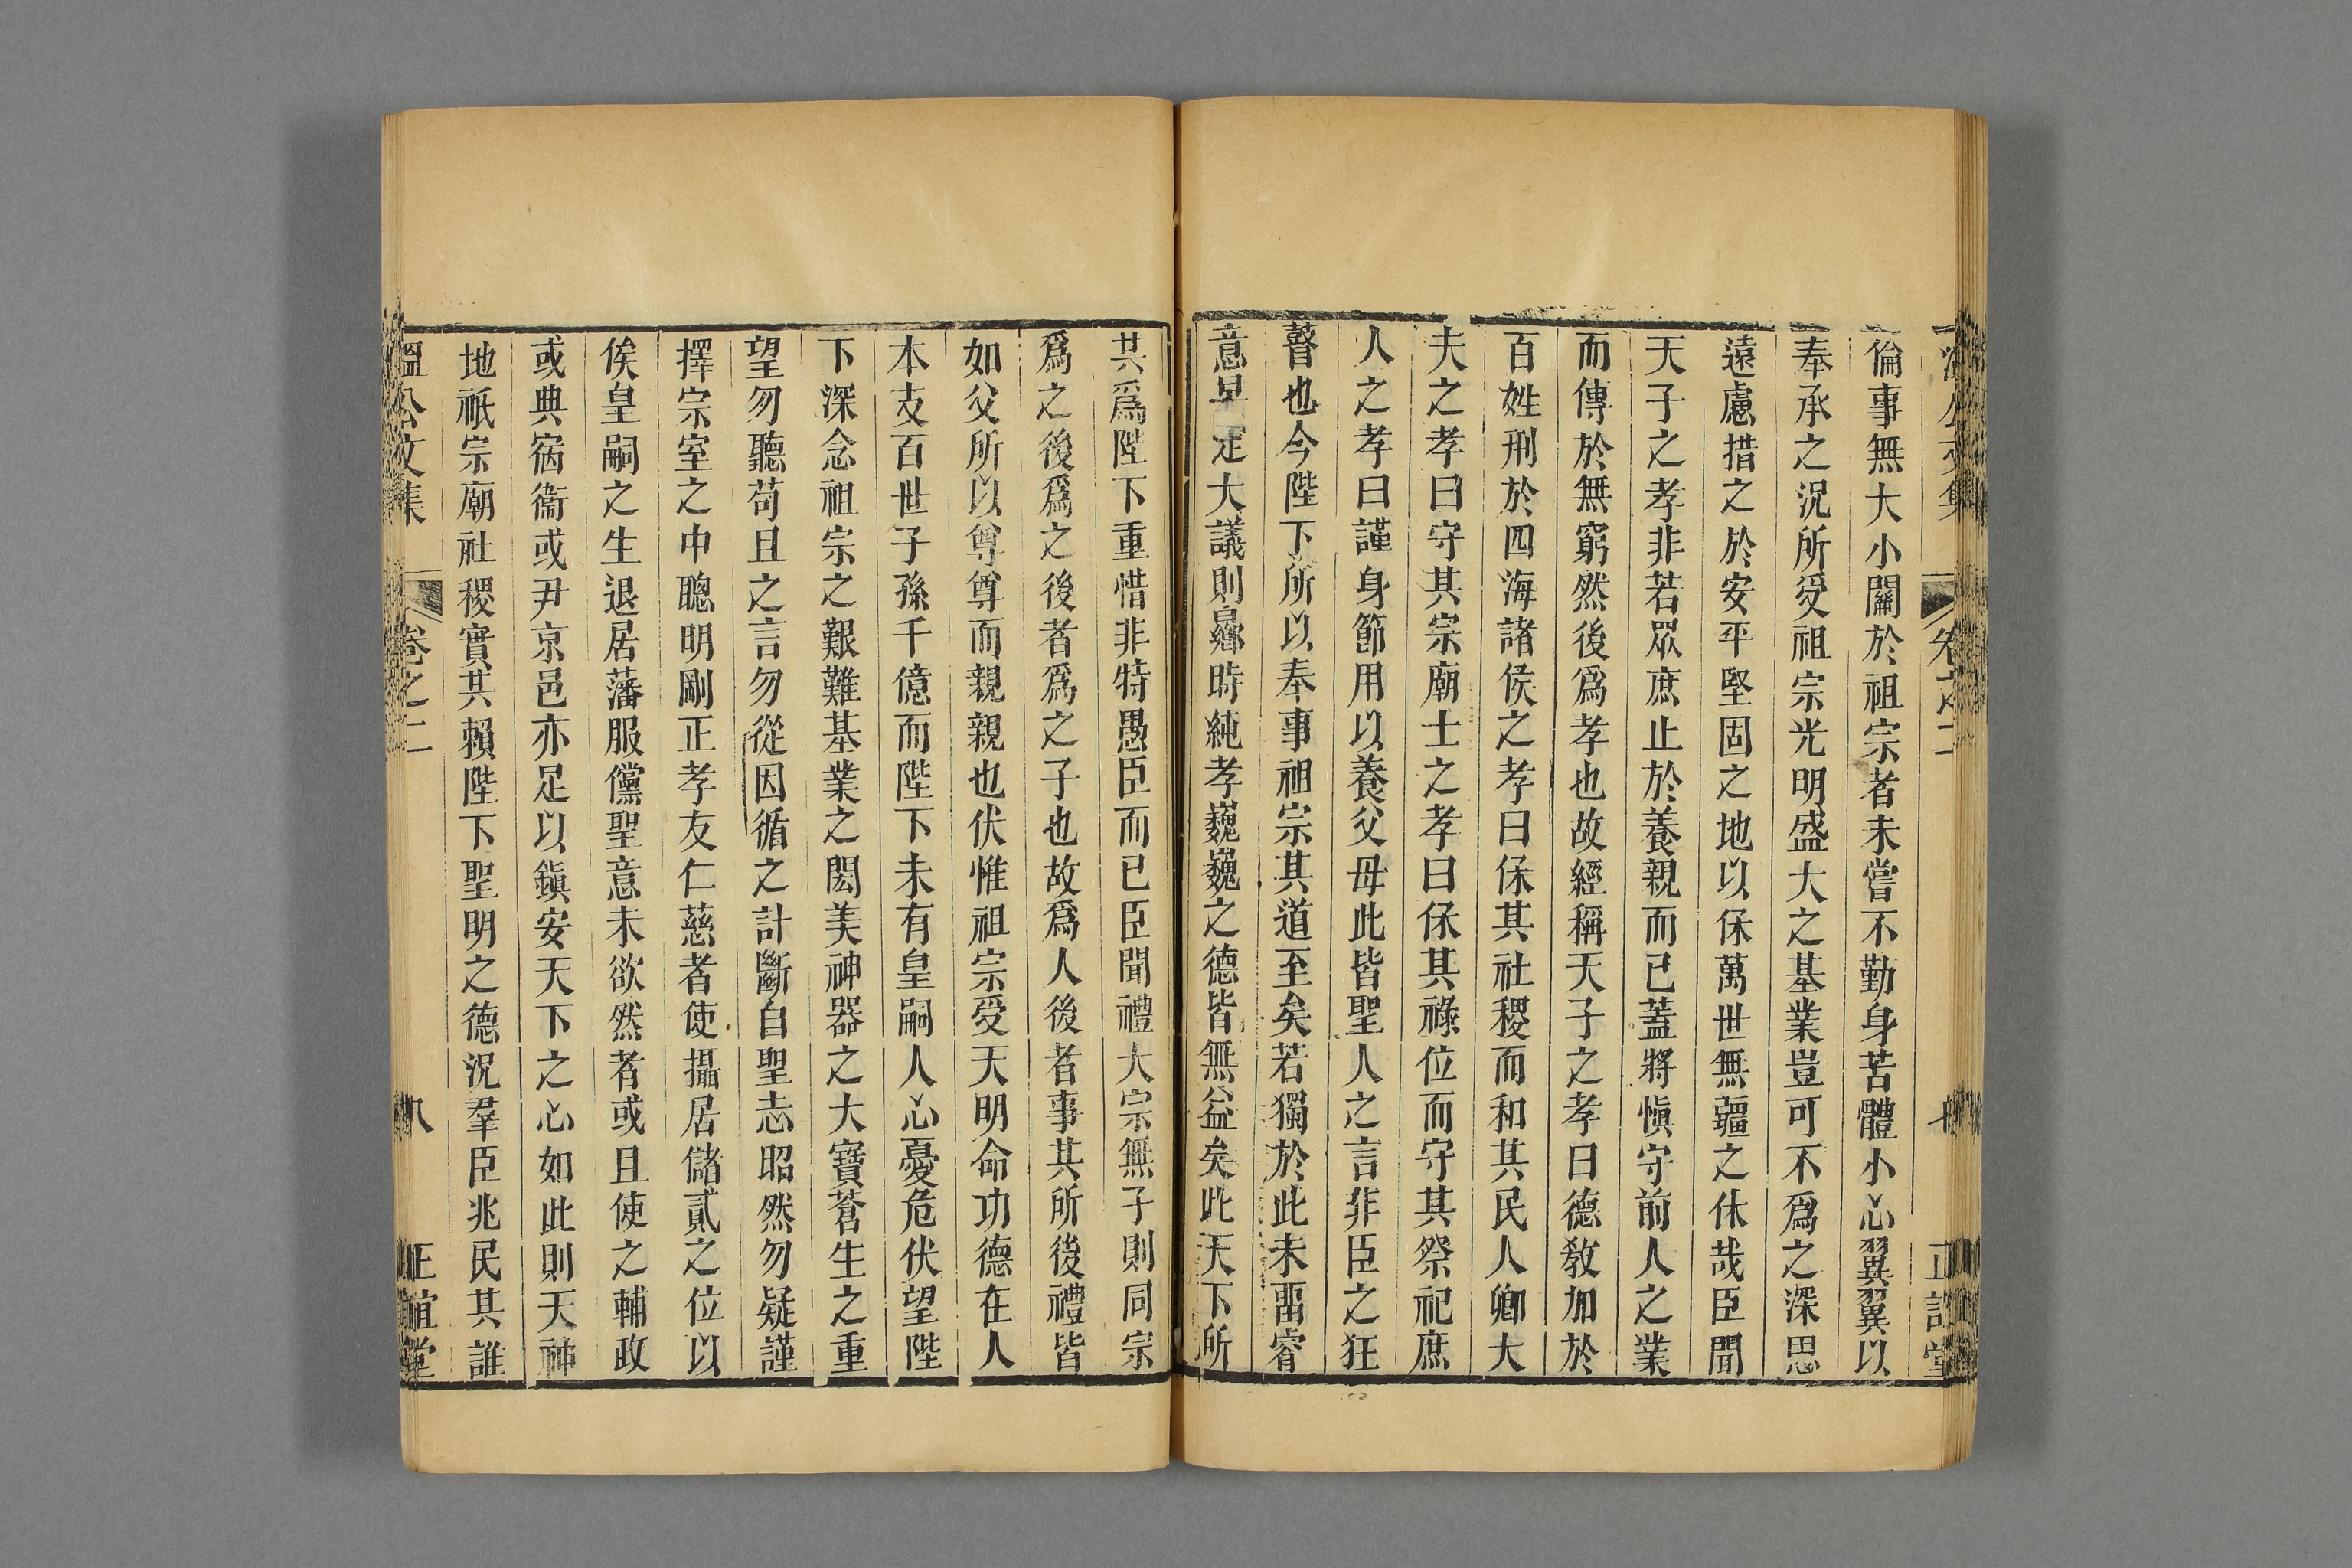 溫公文集 卷之二 七 正誼堂
倫事無大小關於祖宗者未嘗不勤身苦體小心翼翼以
奉承之況所受祖宗光明盛大之基業豈可不爲之深思
遠慮措之於安平堅固之地以保萬世無疆之休哉臣聞
天子之孝非若眾庶止於養親而已蓋將愼守前人之業
而傳於無窮然後爲孝也故經稱天子之孝曰德敎加於
百姓刑於四海諸侯之孝曰保其社稷而和其民人卿大
夫之孝曰守其宗廟士之孝曰保其祿位而守其祭祀庶
人之孝曰謹身節用以養父母此皆聖人之言非臣之狂
瞽也今陛下所以奉事祖宗其道至矣若獨於此未畱睿
意早定大議則曏時純孝巍巍之德皆無益矣此天下所
共爲陛下重惜非特愚臣而已臣聞禮大宗無子則同宗
爲之後爲之後者爲之子也故爲人後者事其所後禮皆
如父所以尊尊而親親也伏惟祖宗受天明命功德在人
本支百世子孫千億而陛下未有皇嗣人心憂危伏望陛
下深念祖宗之艱難基業之閎美神器之大寶蒼生之重
望勿聽苟且之言勿從因循之計斷自聖志昭然勿疑謹
擇宗室之中聰明剛正孝友仁慈者使攝居儲貳之位以
俟皇嗣之生退居藩服儻聖意未欲然者或且使之輔政
或典宿衞或尹京邑亦足以鎭安天下之心如此則天神
地祇宗廟社稷實其賴陛下聖明之德況羣臣兆民其誰
溫公文集 卷之二 八 正誼堂